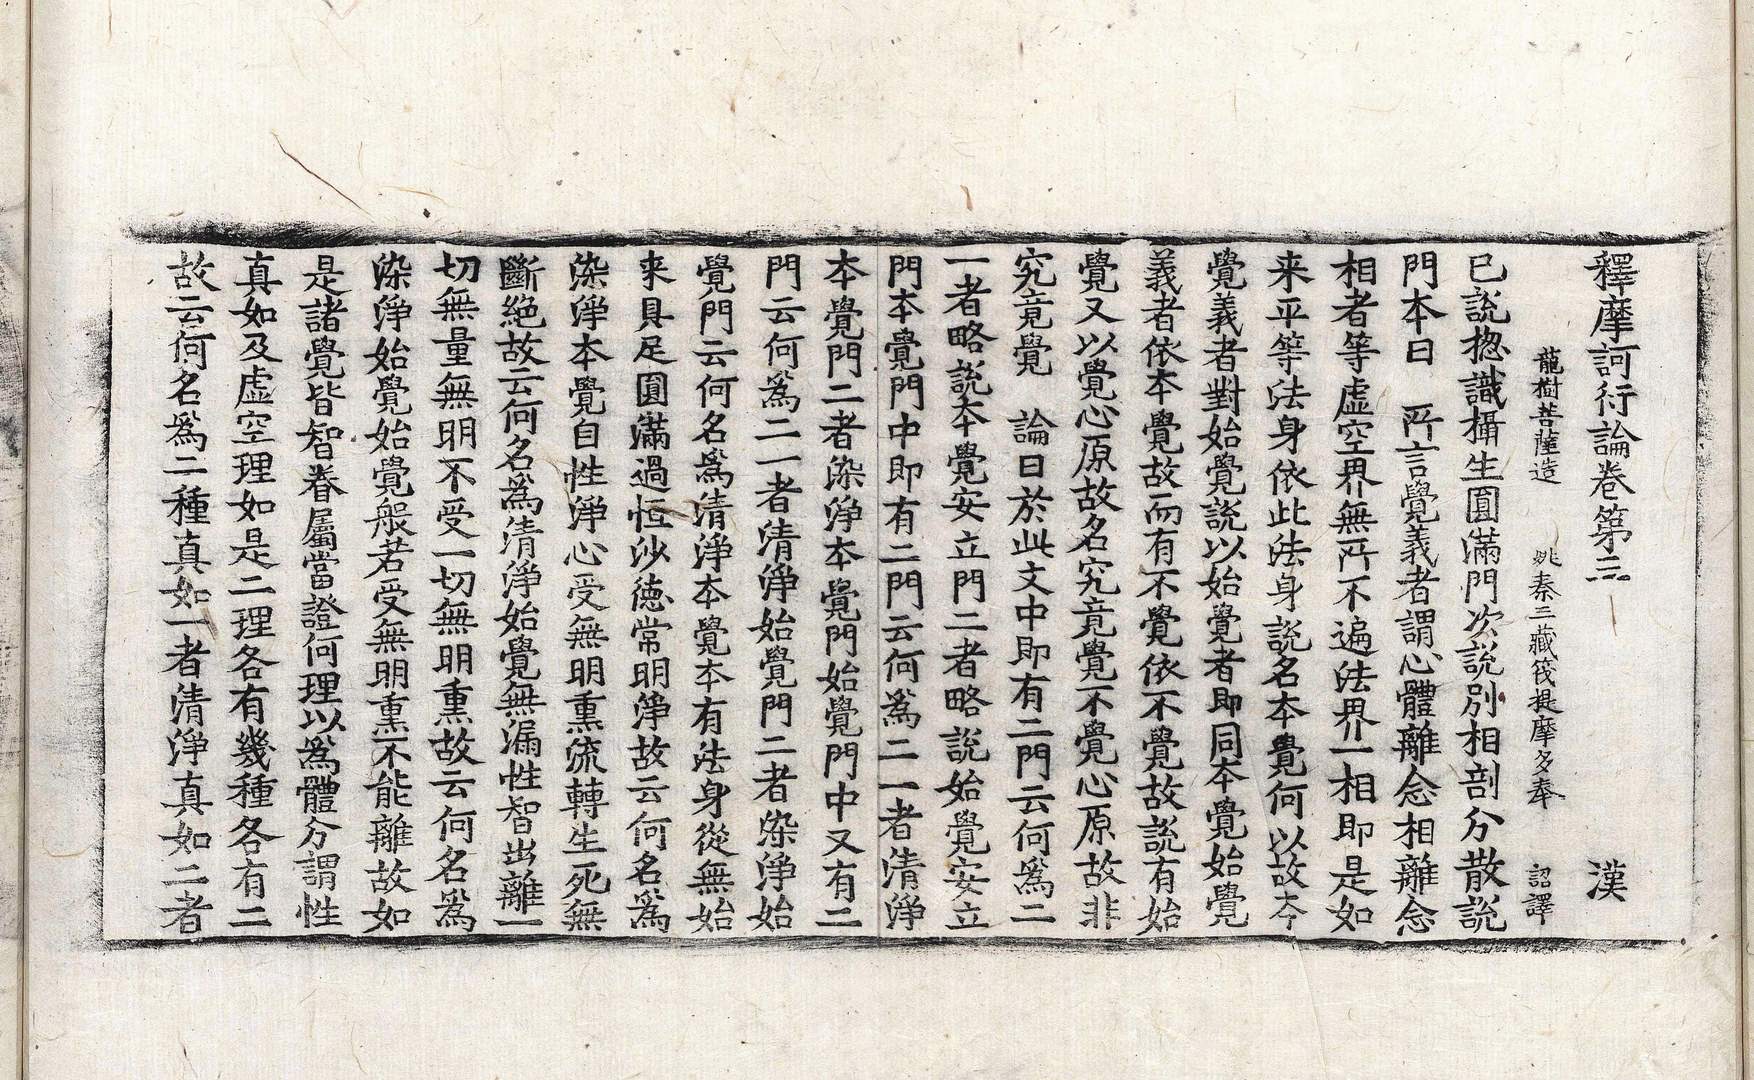 釋摩訶衍論卷第三　漢
龍樹菩薩造　姚秦三藏筏提摩多奉　詔譯
已說揔識攝生圓滿門次說別相剖分散說
門本曰　所言覺義者謂心體離念相離念
相者等虛空界無所不遍法界一相即是如
来平等法身依此法身說名本覺何以故夲
覺義者對始覺說以始覺者即同本覺始覺
義者依本覺故而有不覺依不覺故說有始
覺又以覺心原故名究竟覺不覺心原故非
究竟覺　論曰於此文中即有二門云何爲二
一者略說夲覺安立門二者略說始覺安立
門本覺門中即有二門云何爲二一者清淨
夲覺門二者染淨本覺門始覺門中又有二
門云何爲二一者清淨始覺門二者染淨始
覺門云何名爲清淨本覺本有法身從無始
来具足圓滿過恒沙徳常明淨故云何名爲
染淨本覺自性淨心受無明熏流轉生死無
斷絶故云何名爲清淨始覺無漏性智出離一
切無量無明不受一切無明熏故云何名爲
染淨始覺始覺般若受無明熏不能離故如
是諸覺皆智眷屬當證何理以爲體分謂性
真如及虛空理如是二理各有幾種各有二
故云何名爲二種真如一者清淨真如二者